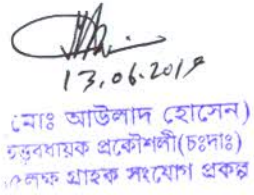 13.06.2019
মোঃ আউলাদ হোসেন)
তত্ত্বাবধায়ক প্রকৌশলী(চঃদাঃ)
লক্ষ গ্রাহক সংযোগ প্রকল্প